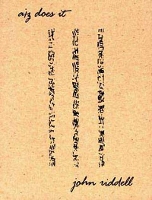 a/z does it
john riddell